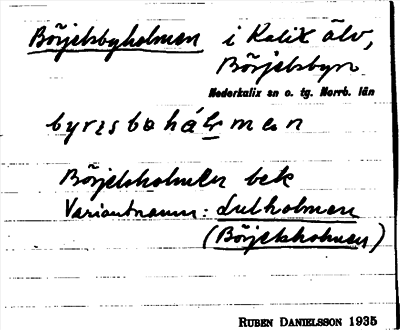 Börjelsbyholmen i Kalix älv,
Börjelsbyn
Nederkalix sn o. tg. Norrb. län
Börjelsholmen bek
Variantnamn: Lulholmen
(Börjelsholmen)
RUBEN DANIELSSON 1935